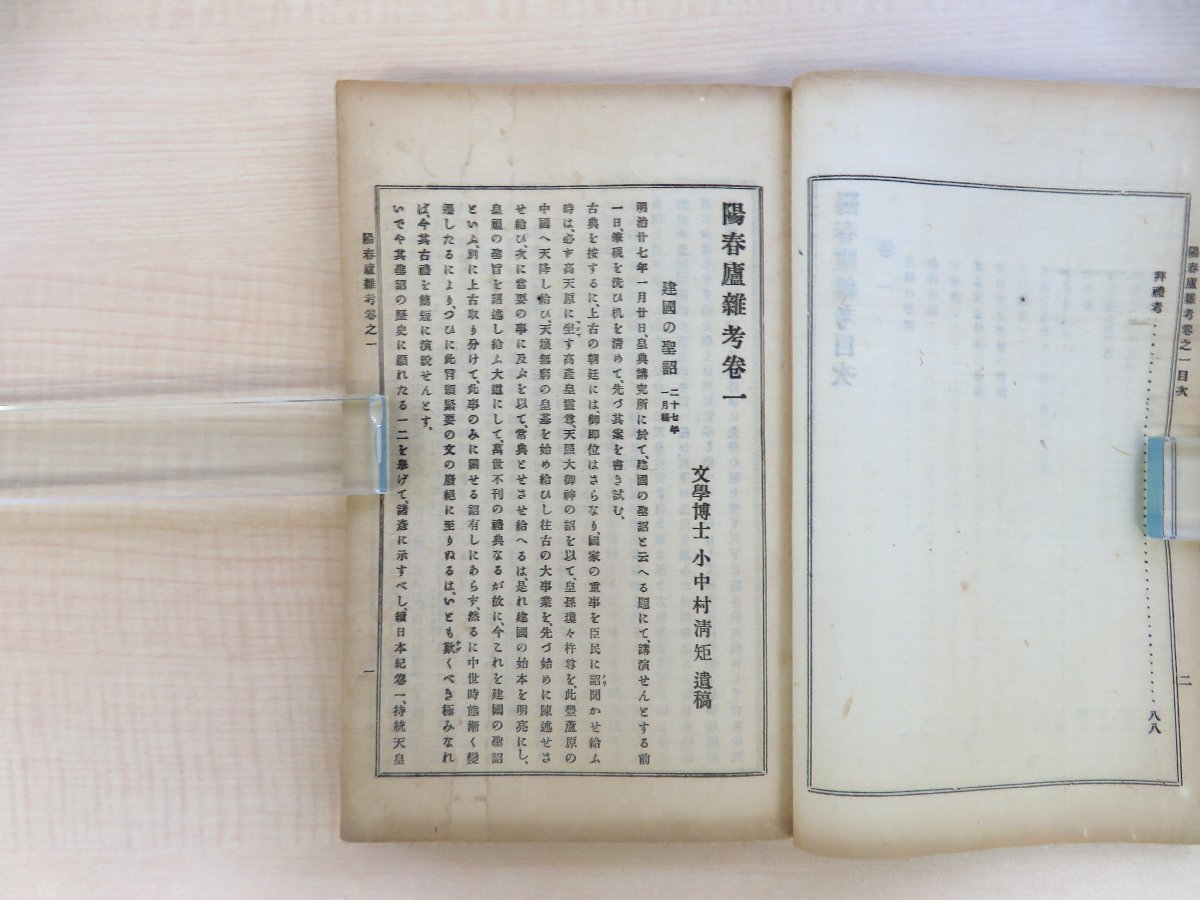 陽春廬雜考卷之一目次
二
拜禮考‥‥‥‥‥‥‥‥八八
陽春廬雜考卷一
文學博士 小中村淸矩 遺稿
建國の聖詔 二十七年一月稿
明治廿七年一月廿日、皇典講究所に於て、建國の聖詔と云へる題にて、講演せんとする前
一日、筆硯を洗ひ机を淸めて、先づ其案を書き試む、
古典を按するに、上古の朝廷には御卽位はさらなり、國家の重事を臣民に詔聞かせ給ふ
時は、必ず高天原に坐す高產皇靈尊、天照大御神の詔を以て、皇孫瓊々杵尊を、此豐蘆原の
中國へ天降し給ひ、天壤無窮の皇基を始め給ひし往古の大事業を、先づ始めに陳述せさ
せ給ひ、次に當要の事に及ぶを以て、常典とせさせ給へるは、是れ建國の始本を明亮にし、
皇祖の聖旨を謳述し給ふ大道にして、萬世不刊の禮典なるが故に、今これを建國の聖詔
といふ、別に上古取り分けて、此事のみに關せる詔有しにあらず、然るに中世時態漸く變
遷したるにより、つひに此冒頭緊要の文の廢絕に至りぬるは、いとも歎くべき極みなれ
ば、今其古禮を簡短に演說せんとす、
いでや其聖詔の歷史に顯れたる一二を擧げて、諸彥に示すべし、續日本紀卷一、持統天皇
陽春廬雜考卷之一
一